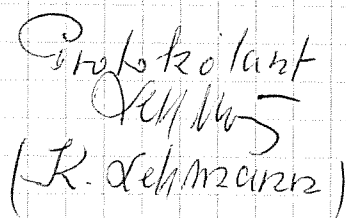 Protokolant
(K. Lehmann)